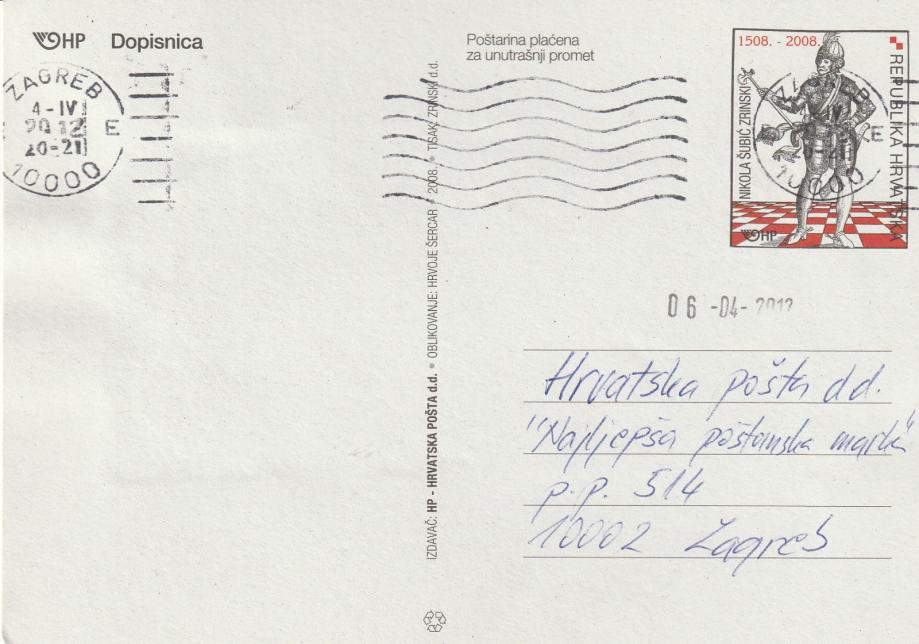 HP Dopisnica
Poštarina plaćena
za unutrašnji promet
1508. - 2008.
NIKOLA ŠUBIĆ ZRINSKI
REPUBLIKA HRVATSKA
HP
ZAGREB
4-IV
2012
20-21
E
10000
ZAGREB
E
10000
06 -04- 2012
Hrvatska pošta d.d.
"Najljepša poštanska marka"
p.p. 514
10002 Zagreb
IZDAVAČ: HP - HRVATSKA POŠTA d.d. • OBLIKOVANJE: HRVOJE ŠERCAR • 2008. • TISAK: ZRINSKI d.d.